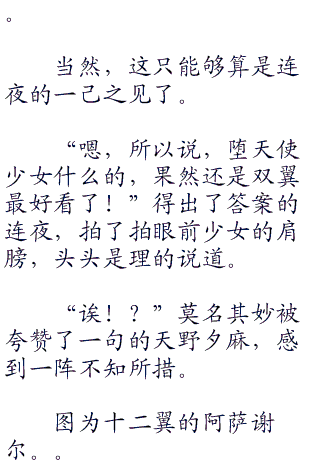 。
当然，这只能够算是连
夜的一己之见了。
“嗯，所以说，堕天使
少女什么的，果然还是双翼
最好看了！”得出了答案的
连夜，拍了拍眼前少女的肩
膀，头头是道的说道。
“诶！？”莫名其妙被
夸赞了一句的天野夕麻，感
到一阵不知所措。
图为十二翼的阿萨谢
尔。。